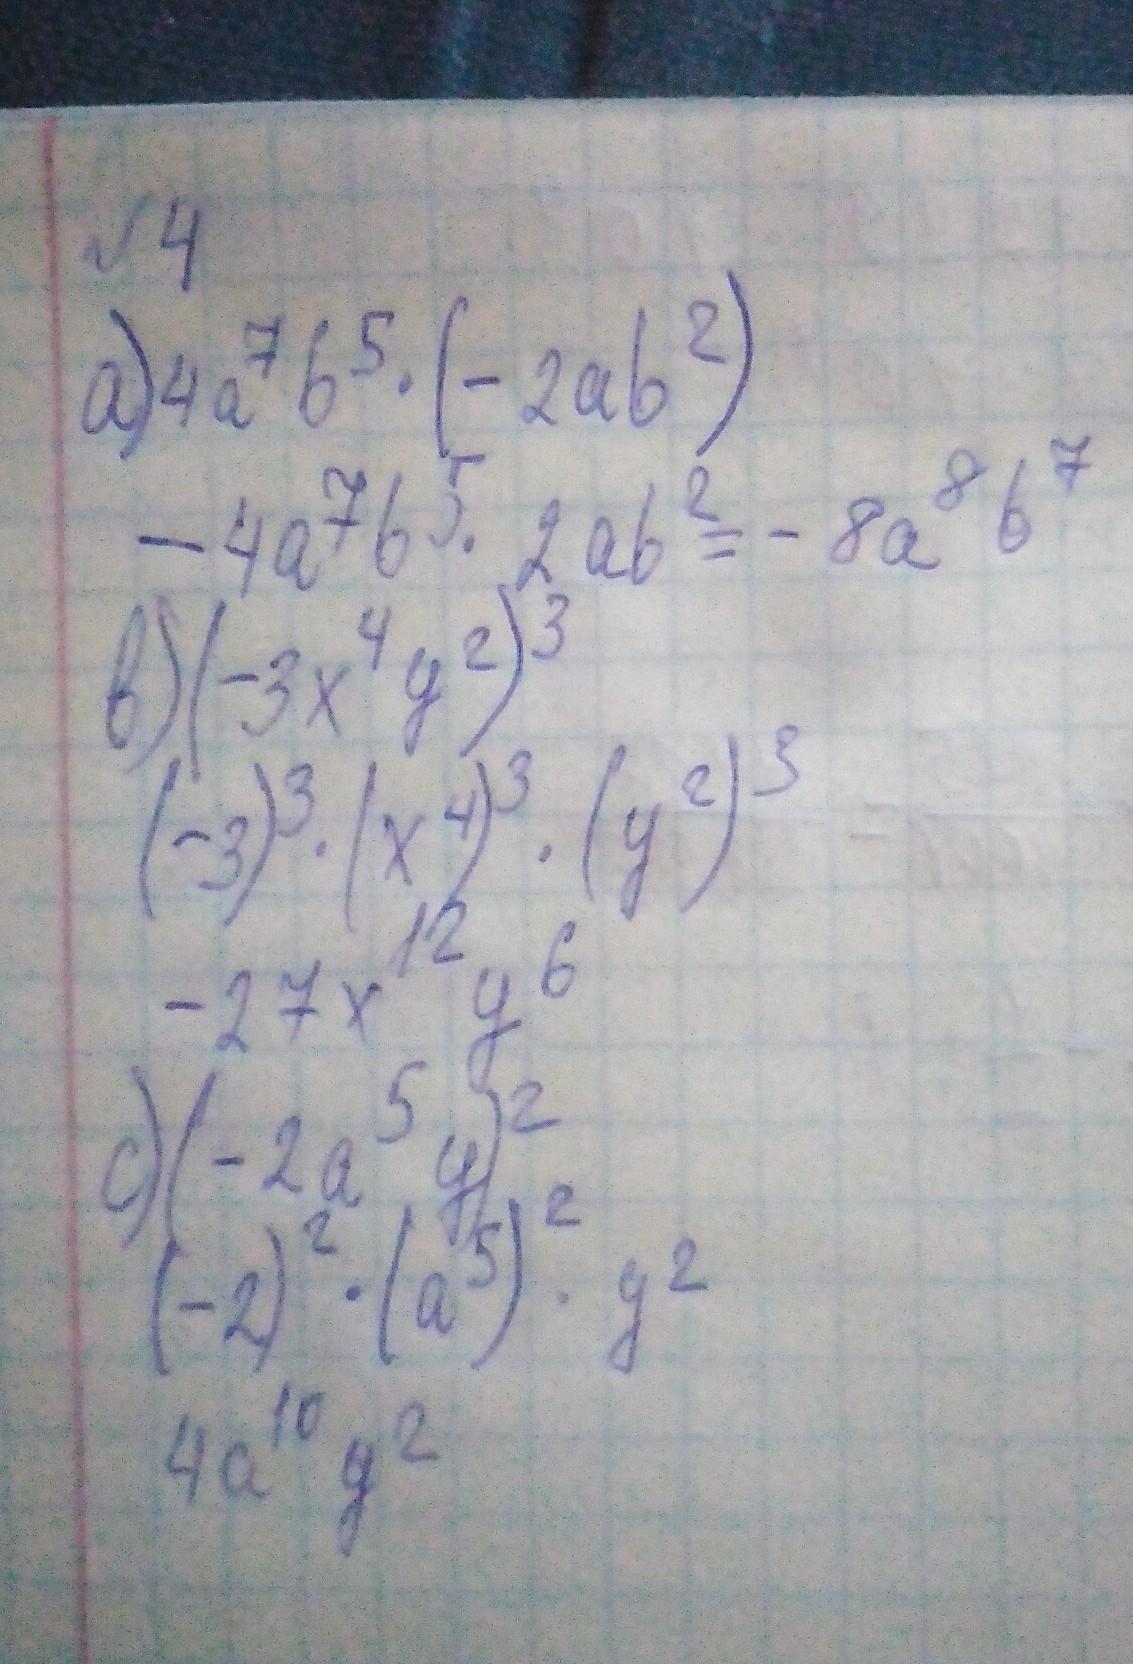 √4
a) 4a⁷b⁵·(-2ab²)
-4a⁷b⁵·2ab²=-8a⁸b⁷
b) (-3x⁴y²)³
(-3)³·(x⁴)³·(y²)³
-27x¹²y⁶
c) (-2a⁵y)²
(-2)²·(a⁵)²·y²
4a¹⁰y²